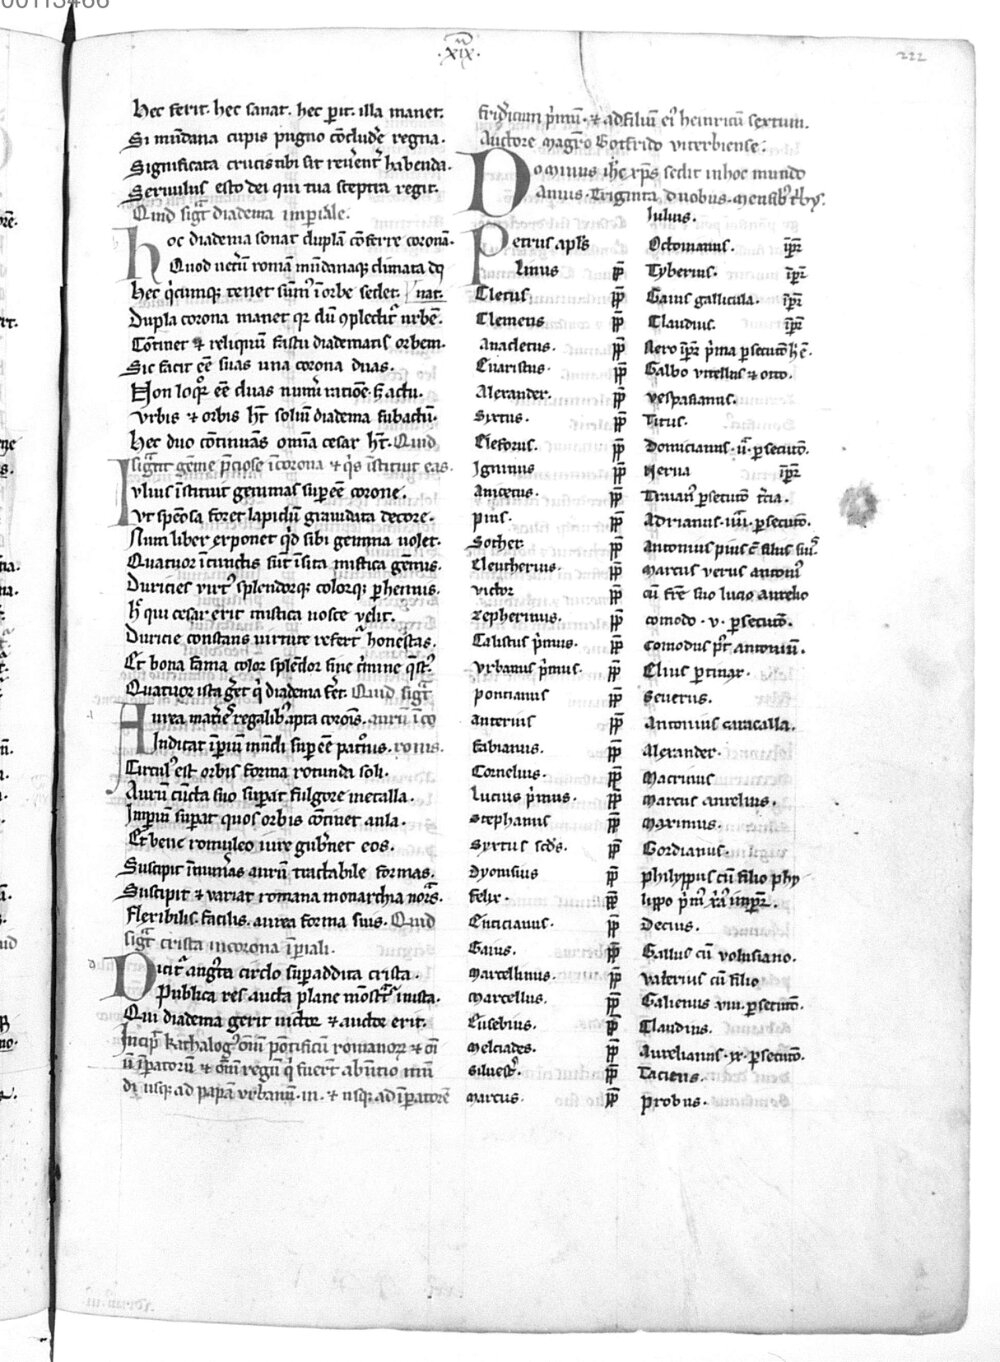 00113466
·xix·
222
Hec ferit. hec sanat. hec p̲it. illa manet.
Si mūdana cupis pugno cōclud'e regna.
Significata crucis tibi sit reuēnt' habenda.
Seruulus esto dei qui tua sceptra regit.
Quid sigͣt diadema imp̲iale.
Hoc diadema sonat duplā cōferre corona.
Quod uerū romā mūdanaq; climata dō
Hec q̇cumq; tenet sūm' ī orbe sedet. nat.
Dupla corona manet qr dū 9plectit' urbē.
Cōtinet ⁊ reliquū fastu diadematis orbem.
Sic facit eē̄ suas una corona duas.
Non loqͦr eē̄ duas num'i ratiōe. sꝫ actu.
Vrbis ⁊ orbis hꝫ solium diadema subactū.
Hec duo cōtinuās omīa cesar hꝫ. Quid
sigͣnt gēme p̄ciose ī corona ⁊ q̇s īstituit eas.
Iulius īstituit gemmas sup̲ eē̄ corone.
Vt spēosa foret lapidū grauidata decore.
Nunc liber exponet qͦd sibi gemma uolet.
Quatuor ī cunctis sūt īsita mistica gēmis.
Duricies uirt' splendorq; colorq; p̲hennis.
Hͦ qui cesar erit mistica nosce uelit.
Duricie constans uirtute refert' honestas.
Et bona fama color splēdor sine c'mine q̄st'.
Quatuor ista ḡet q̇ diadema fēt. Quid sigͣt
Aurea mat'ies regalibꝫ apta corōis. aurū ī co
Indicat īp̲iū mūdi sup̲ eē̄ pat'nis. ronis.
Circul' est orbis forma rotunda soli.
Aurū cūcta suo sup̲at fulgore metalla.
Imp̲iū sup̲at quos orbis cōtinet aula.
Et bene romuleo iure gub'net eos.
Suscipit īnum'as aurū tractabile formas.
Suscipit ⁊ uariat romana monarchia norͣs.
Flexibilis facilis. aurea forma suis. Quid
sigͣt crista in corona īp̲iali.
Dicitͬ augͭta circlo sup̲addita crista.
Publica res aucta plane mōstrat' iusta.
Qui diadema gerit uictor ⁊ auctor erit.
Incip̄ kathalog' om̄iū pōtificū romanoꝝ ⁊ oī
ū īp̲atorū ⁊ om̄iū regū q̇ fuert' ab inicio mū
di usq; ad papā vrbanū. iii. ⁊ usq; ad īp̲atorē
fridicum p̄mū. ⁊ ad filiū ei' heinricū sextum.
Auctore magr̄o Gotfrido viterbiense.
Dominus ihc̄ xp̄s sedit in hoc mundo
Annis triginta duobus. mensibꝫ tbꝫ.
Iulius.
Petrus apl̄s Octouianus. īp̲r
Linus pp̄ Tyberius. īp̲r
Cletus pp̄ Gaius gallicula. īp̲r
Clemens pp̄ Claudius. īp̲r
Anacletus. pp̄ Nero īp̲r p̄ma p̲secutō h' ē.
Euaristus. pp̄ Galbo vitellus ⁊ otto.
Alexander. pp̄ Vespasianus.
Syxtus. pp̄ Titus.
Thelesforus. pp̄ Domicianus. iiͣ. p̲secutō.
Igninus pp̄ Nerua īp̲r
Anicetus. pp̄ Traian' p̲secutō t'cia.
Pius. pp̄ Adrianus. iiii. p̲secutō.
Sother. pp̄ Antonius pius c̄ filiis suis.
Eleutherius. pp̄ Marcus verus antoni'
Victor pp̄ cū fr̄e suo lucio aurelio
Zepherinus. pp̄ comodo. v. p̲secutō.
Calistus p̄mus. pp̄ Comodus p̄t antoninū.
Vrbanus p̄mus. pp̄ Elius p̲tinax.
Pontianus pp̄ Seuerus.
Anterius pp̄ Antonius caracalla.
Fabianus. pp̄ Alexander.
Cornelius. pp̄ Macrinus
Lucius p̄mus. pp̄ Marcus aurelius.
Stephanus pp̄ Maximus.
Syxtus scd̄s. pp̄ Gordianus.
Dyonisius pp̄ Philyppus cū filio phy
Felix. pp̄ lippo p̄m' x̄an' imp̲r.
Euticianus. pp̄ Decius.
Gaius. pp̄ Gallus cū volusiano.
Marcellinus. pp̄ Valerius cū filio
Marcellus. pp̄ Galienus viii. p̲secutō.
Eusebius. pp̄ Claudius.
Melciades. pp̄ Aurelianus. ix. p̲secutō.
Siluest'. pp̄ Tacitus.
Marcus. pp̄ Probus.